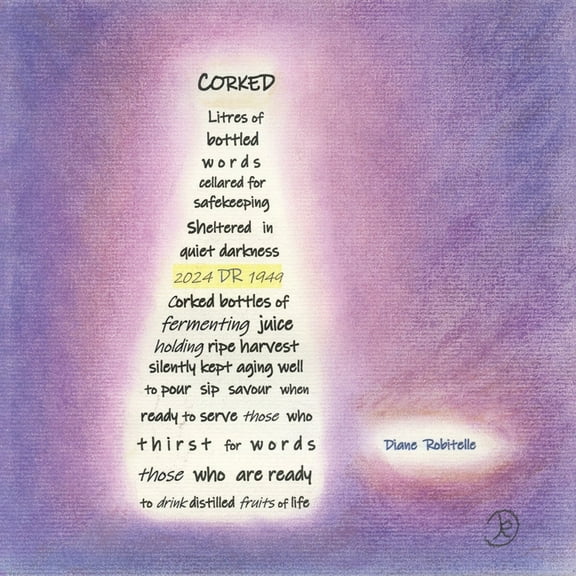 CORKED
Litres of
bottled
words
cellared for
safekeeping
Sheltered in
quiet darkness
2024 DR 1949
Corked bottles of
fermenting juice
holding ripe harvest
silently kept aging well
to pour sip savour when
ready to serve those who
thirst for words
those who are ready
to drink distilled fruits of life
Diane Robitelle